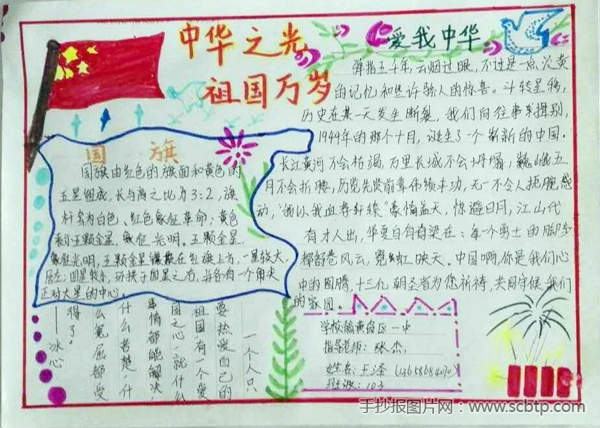 中华之光
祖国万岁
爱我中华
弹指五千年,云烟过眼,不过是一点沉
的记忆和些许骇人的惊喜。斗转星移,
历史在某一天发生断裂,我们向往事来挥别,
1949年的那个十月,诞生了一个崭新的中国。
长江黄河不会枯竭,万里长城不会坍塌,巍峨五
月不会折腰,历览先贤前辈伟绩丰功,无一不令人扼腕感
动,"我以我血荐轩辕"豪情盖天,惊避日月,江山代
有才人出,华夏自有脊梁在:每一个勇士的
都舒卷风云,霓虹映天。中国啊,你是我们心
中的图腾,十三亿朝圣者为您祈祷,共同守候我们
的家园。
国旗
国旗由红色的旗面和黄色的
五星组成,长与高之比为3:2,旗
杆套为白色,红色象征革命;黄色
表示五颗金星,象征光明,五颗金星
象征光明,五颗金星镶在旗上方,一星较大,
居左;四星较小,环拱于四星之右,并各有一个角尖
正对大星的中心。
一个人只
要热爱自己的
祖国有一个爱
国之心就什么
事情都能解决,
什么苦楚,什
么冤屈都受
得了。
——冰心
学校:黄台区一中
指导老师:张杰
姓名:王泽
班级:103
手抄报图片网:www.scbtp.com